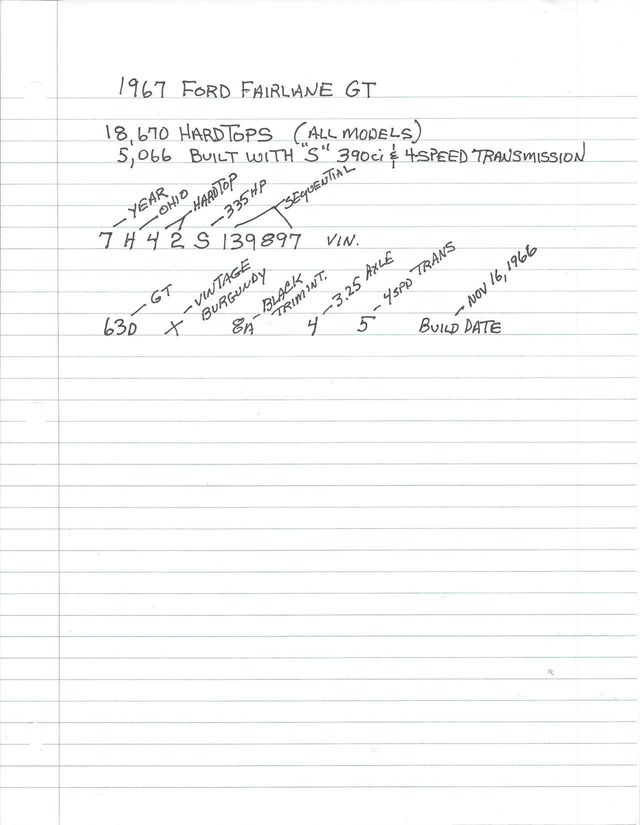 1967 FORD FAIRLANE GT
18,670 HARDTOPS (ALL MODELS)
5,066 BUILT WITH "S" 390ci & 4SPEED TRANSMISSION
YEAR OHIO HARDTOP 335HP SEQUENTIAL
7 H 4 2 S 139897 VIN.
GT VINTAGE BURGUNDY BLACK TRIM INT. 3.25 AXLE 4SPD TRANS NOV 16, 1966
63D X 8A 4 5 BUILD DATE